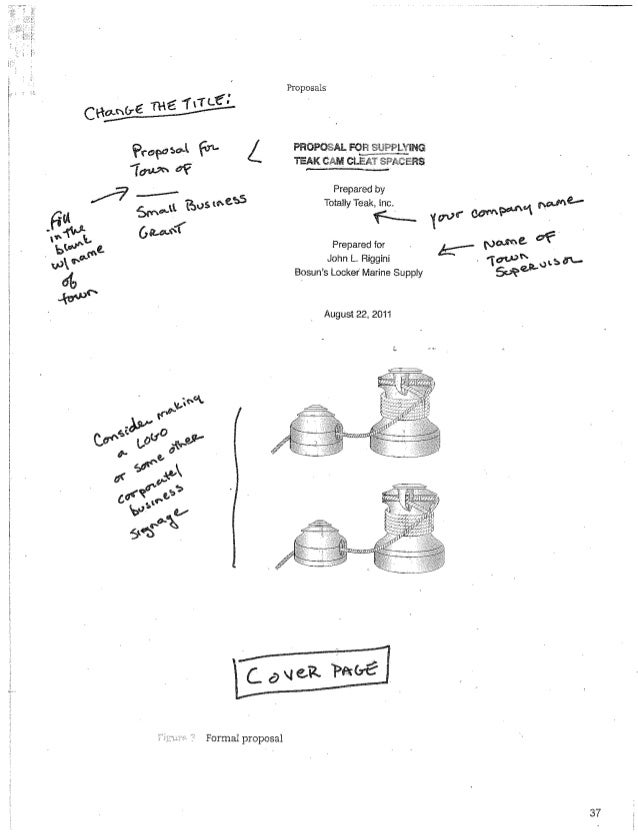 Proposals
CHANGE THE TITLE:
Proposal for
Town of
Small Business
GRANT
Fill
in the
blank
w/ name
of
town
PROPOSAL FOR SUPPLYING
TEAK CAM CLEAT SPACERS
Prepared by
Totally Teak, Inc.
your company name
Prepared for
John L. Riggini
Bosun's Locker Marine Supply
Name of
Town
Supervisor
August 22, 2011
Consider making
a LOGO
or some other
corporate/
business
signage
COVER PAGE
Figure ? Formal proposal
37